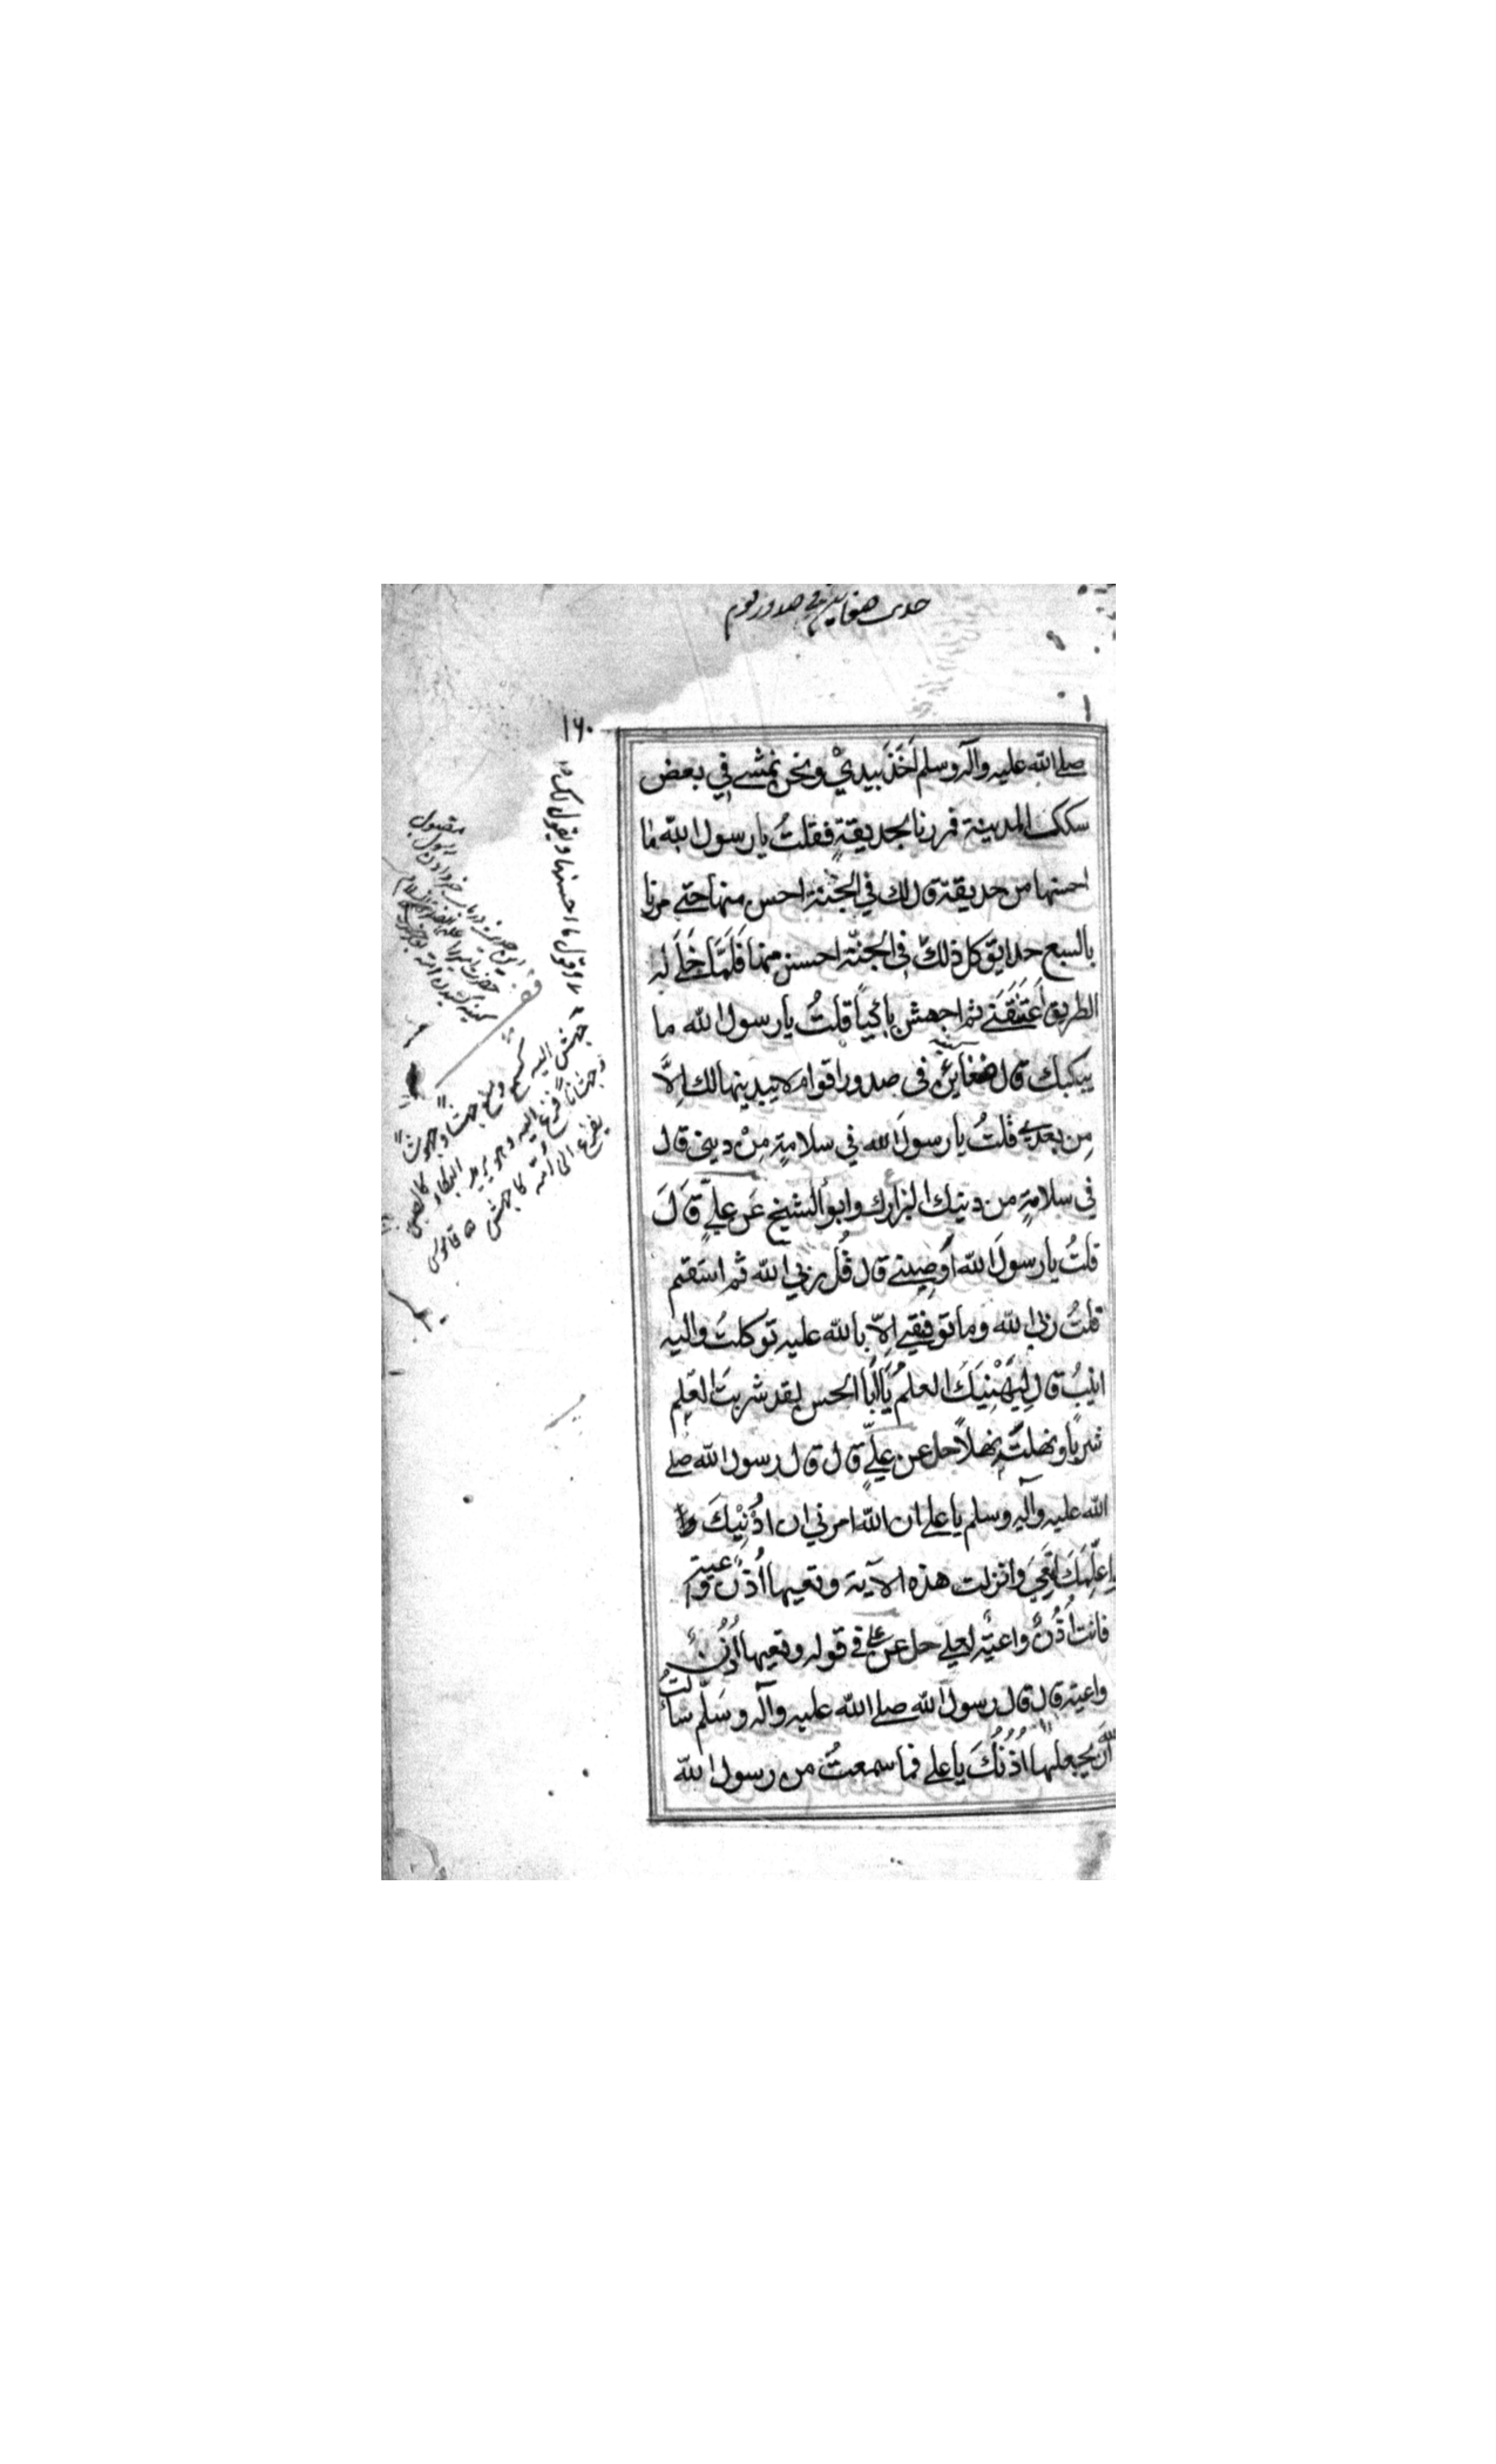 حدیث ضغاین في صدور قوم
۱۶۰
صلے الله عليه وآله وسلم اَخَذَ بيديْ ونحن نمشے في بعض
سكك المدينة فمررنا بحديقةٍ فقلتُ يا رسول الله ما
احسنها من حديقة قال لك في الجنّة احسن منها حتے مررنا
بالسبع حدايق كل ذلك في الجنّة احسن منها فَلَمَّا خَلَے له
الطريق اَعتَنَقَنَے ثم اجهش باكياً قلتُ يا رسول الله ما
يبكيك قال ضغاين في صدور اقوام لا يبدينها لك اِلاَّ
مِن بعدے قلتُ يا رسولَ الله في سلامةٍ مِنْ ديني قال
في سلامةٍ من دينك البزار ك وابو الشيخ عَن علےٍّ قَالَ
قلتُ يا رسولَ الله اَوصِينے قال قُل ربّي الله ثم استقم
قلتُ ربي الله وما توفيقے اِلاّ بالله عليه توكلتُ واليه
انيبُ قال لِيَهْنِيَكَ العلمُ يَا اَبَا الحسن لقد شربتَ العِلم
شربًا ونهلتَه نهلاً حل عن علےٍّ قال قال رسول الله صلے
الله عليه وآله وسلم يا علے ان الله امرني ان اُدْنِيْكَ و
اعلّمَكَ لتَعِيَ وانزلت هذه الآية وتعيها اُذُنٌ واعيةٌ
فانت اُذُنٌ واعيةٌ لعلمے حل عن علے في قوله وتعيها اُذُنٌ
واعية قال قال رسول الله صلے الله عليه وآله وسَلّم سألتُ
اللهَ ان يجعلها اُذُنَكَ يا علے فما سمعتُ من رسول الله
اقول ما احسنها ويقول لك
جهش اليه كسمع ومنع جهشا وجهوشاً
وجهشاناً فزع اليه وهو يريد البكاء كالصبي
يفزع الى امّه كاجهش قاموس